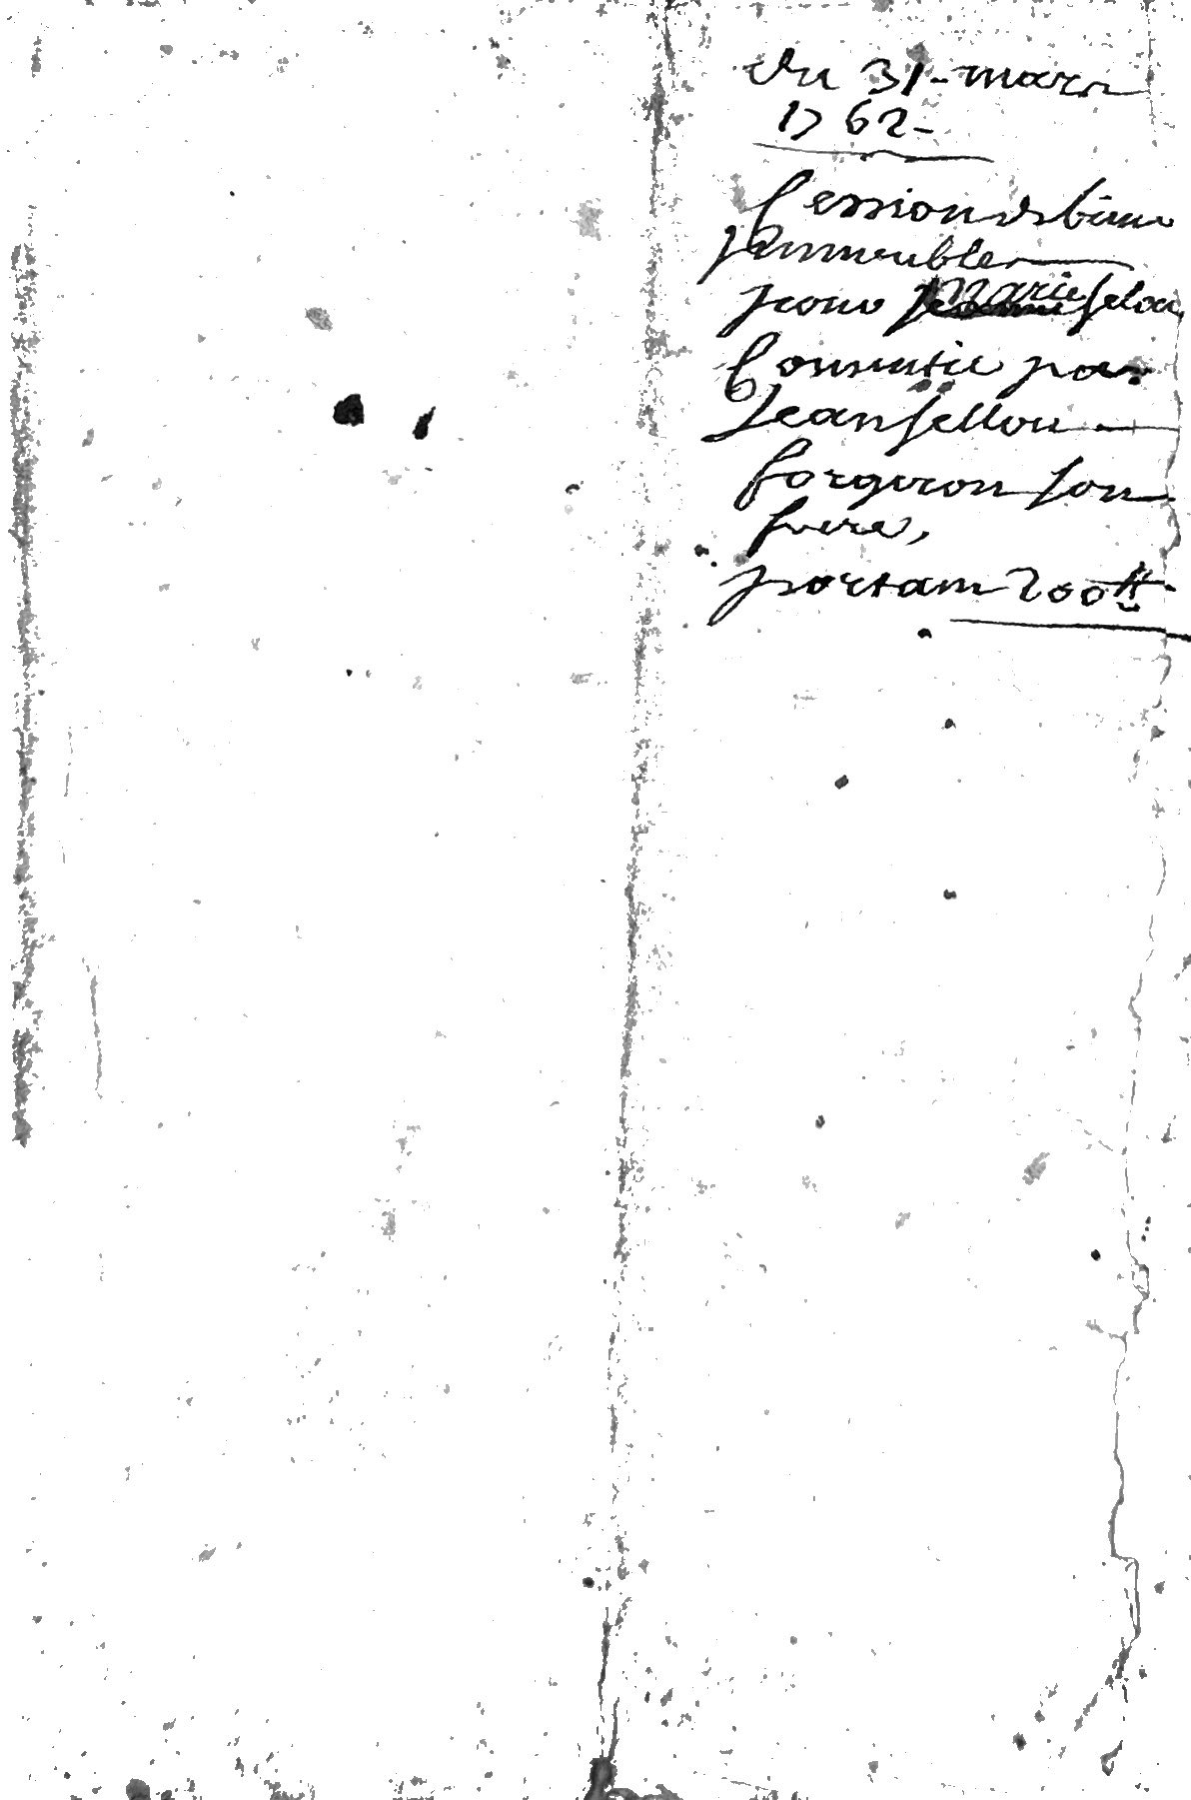 Du 31 - mars
1762 -
Cession de biens
jmmeubles
pour Marie sellou
Consentie par
Jean sellou
forgeron son
frere,
portant 200 ₶